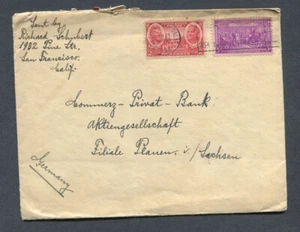 Sent by
Richard Schubert
1902 Pine Str.
San Francisco.
Calif.
Commerz-Privat-Bank
Aktiengesellschaft
Filiale Plauen i./Sachsen
Germany